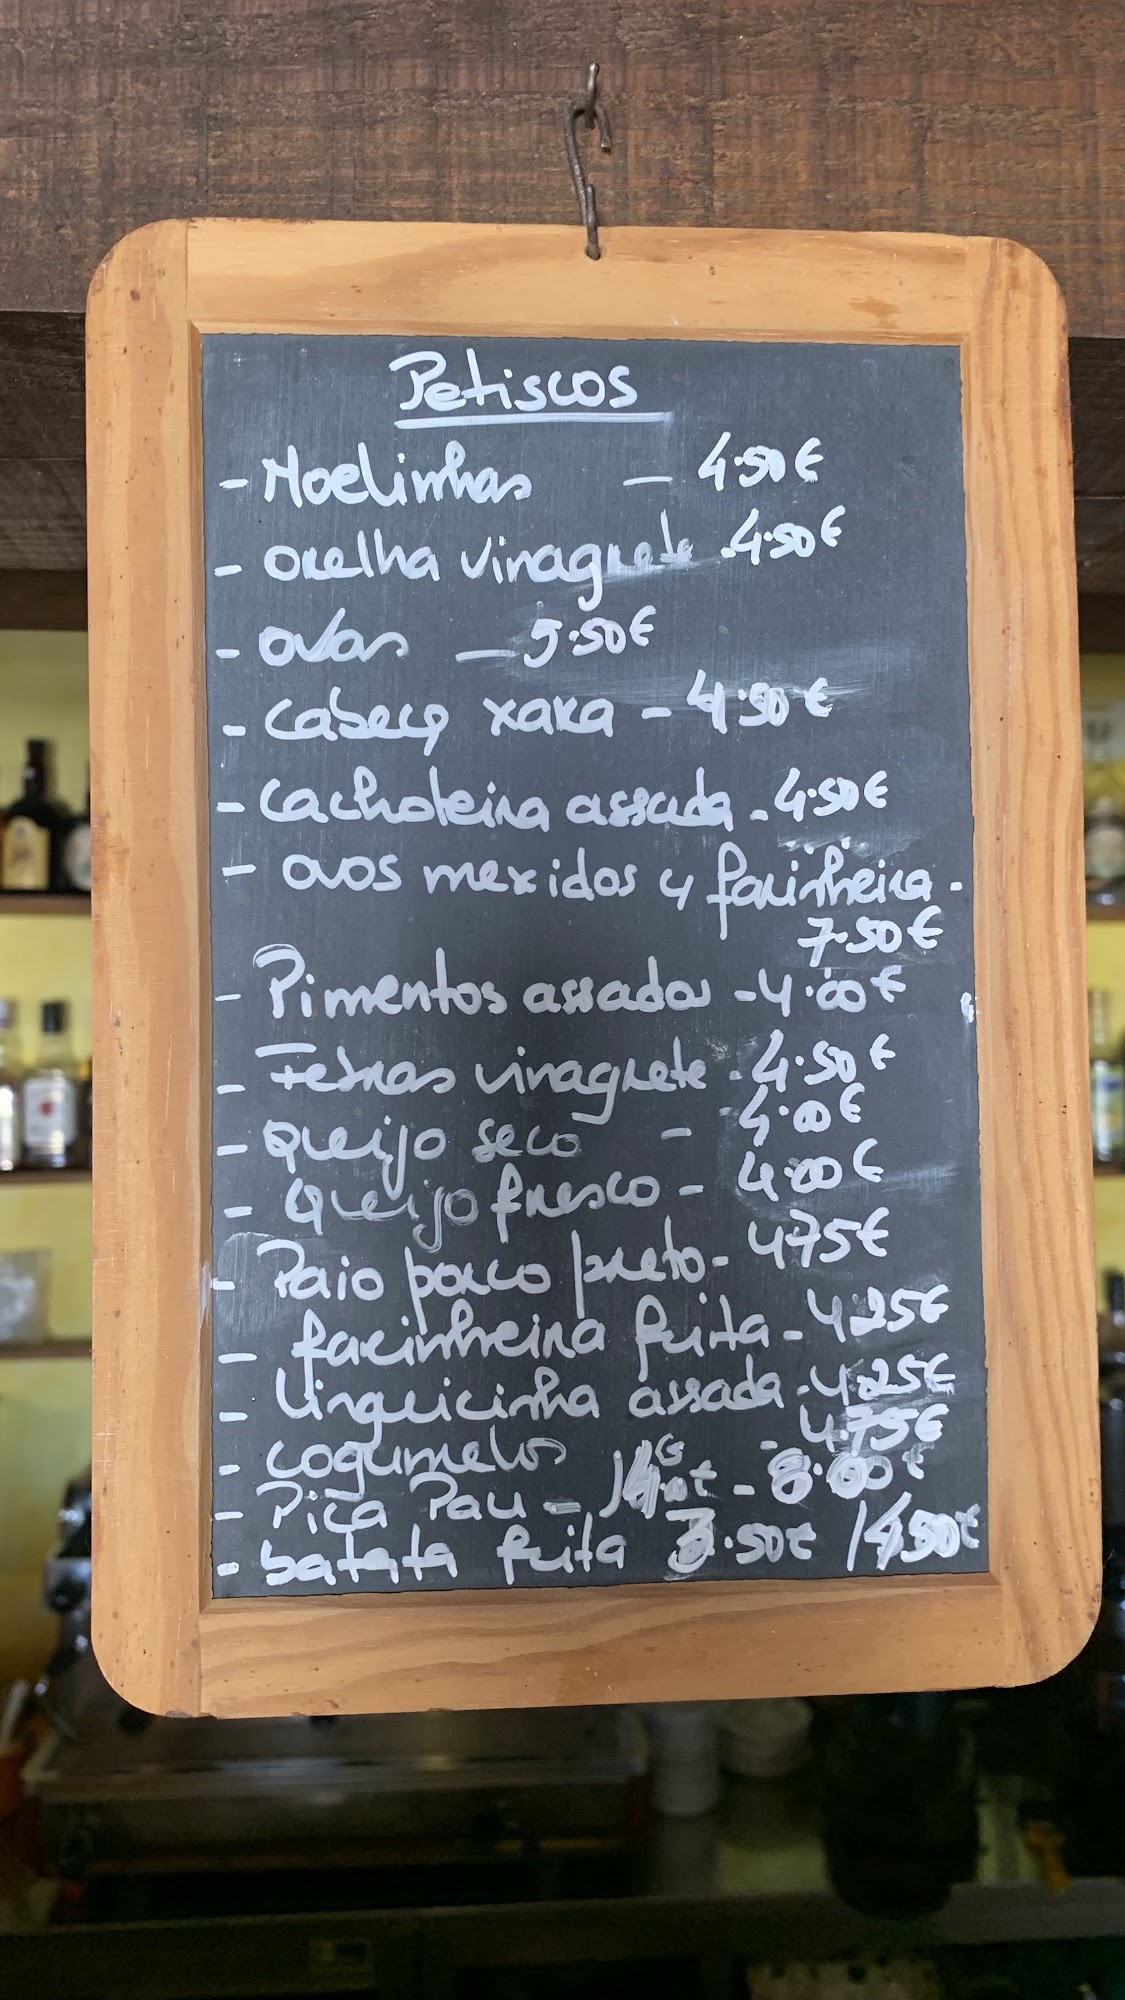 Petiscos
- Moelinhas - 4.50€
- orelha vinagrete - 4.50€
- ovas - 5.50€
- cabeça xara - 4.50€
- cacholeira assada - 4.50€
- ovos mexidos c/ farinheira -
7.50€
- Pimentos assados - 4.00€
- Febras vinagrete - 4.50€
- queijo seco - 4.00€
- queijo fresco - 4.00€
- Paio porco preto - 4.75€
- farinheira frita - 4.25€
- Linguicinha assada - 4.25€
- cogumelos - 4.75€
- Pica Pau - - 8.00€
- batata frita 3.50€